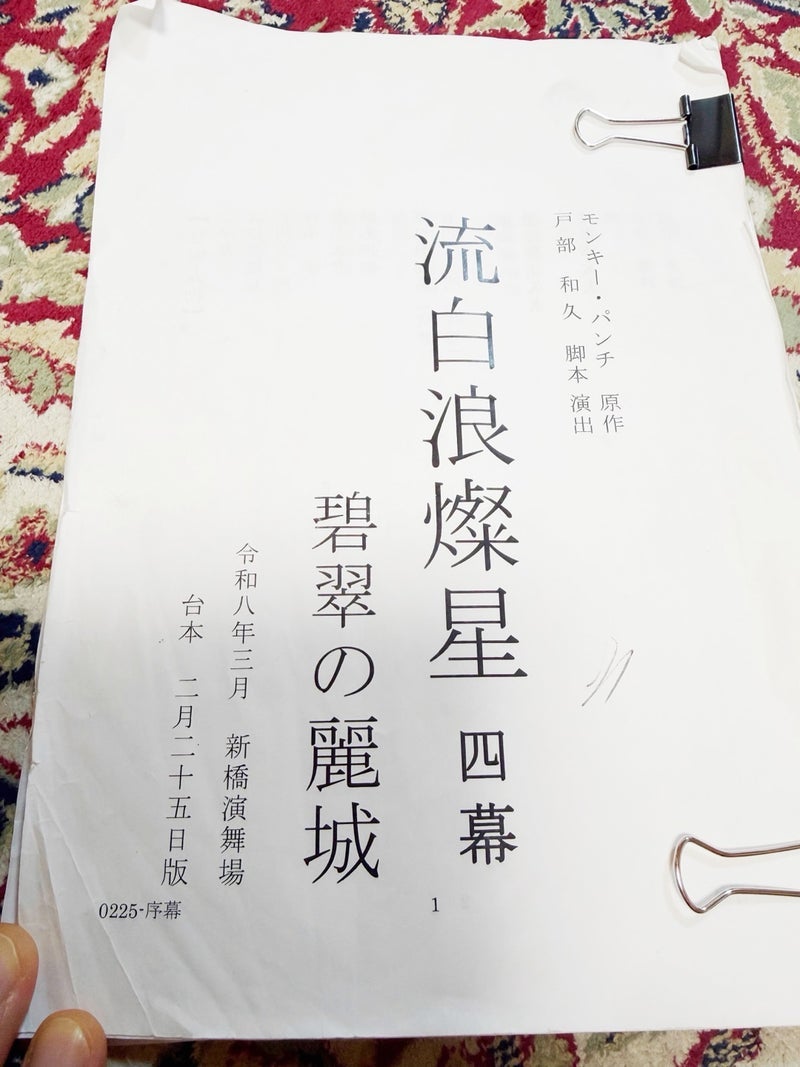 モンキー・パンチ 原作
戸部 和久 脚本 演出
流白浪燦星 四幕
碧翠の麗城
令和八年三月 新橋演舞場
台本 二月二十五日版
0225-序幕
1